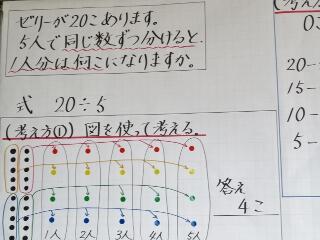 ゼリーが20こあります。
5人で同じ数ずつ分けると、
1人分は何こになりますか。
式 20÷5
(考え方①) 図を使って考える。
1人 2人 3人 4人 5人
答え
4こ
(考え
20-
15-
10-
5-